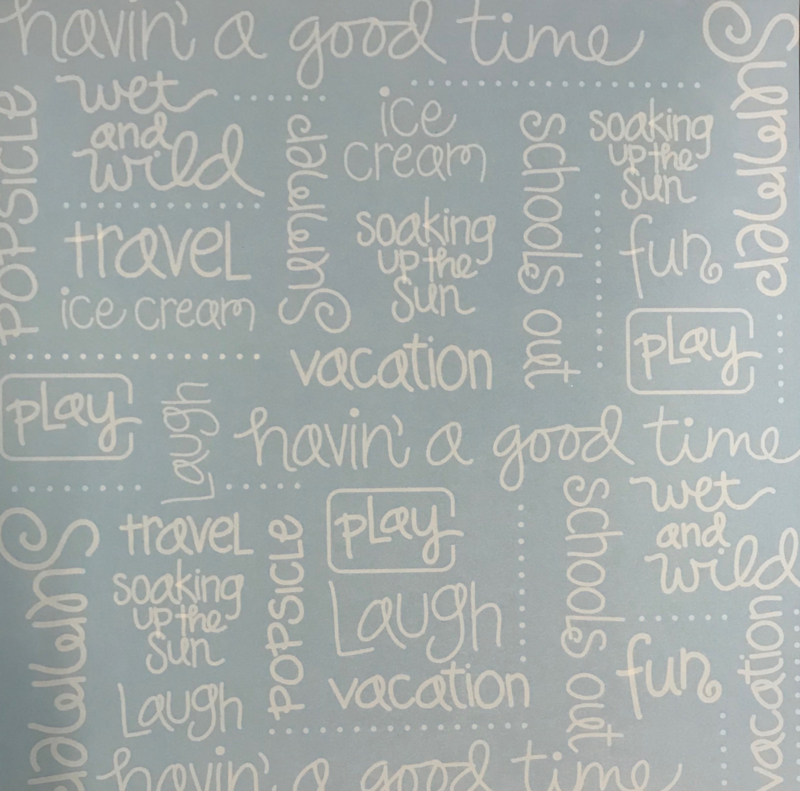 havin' a good time
Summer
POPSICLE
wet
and
wild
Summer
ice
cream
schools out
soaking
up the
sun
travel
ice cream
soaking
up the
sun
fun
vacation
play
play
Laugh
havin' a good time
Summer
travel
soaking
up the
sun
Laugh
POPSICLE
play
Laugh
vacation
schools out
wet
and
wild
fun
vacation
havin' a good time